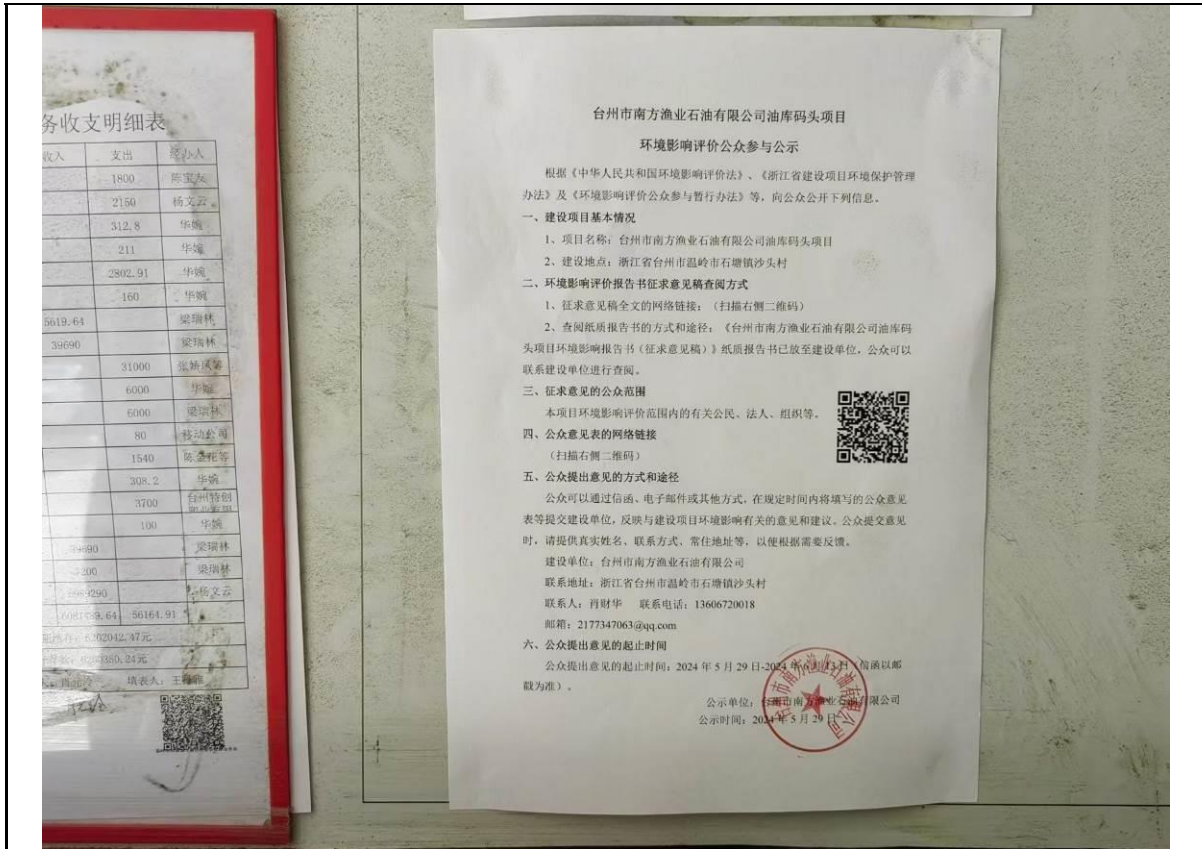 务收支明细表
收入 支出 经办人
1800 陈宝友
2150 杨文云
312.8 华婉
211 华婉
2802.91 华婉
160 华婉
5619.64 梁瑞林
39690 梁瑞林
31000
6000 华婉
6000 梁瑞林
80 移动公司
1540
308.2 华婉
3700 台州特创
100 华婉
39690 梁瑞林
梁瑞林
杨文云
56164.91
填表人：
台州市南方渔业石油有限公司油库码头项目
环境影响评价公众参与公示
根据《中华人民共和国环境影响评价法》、《浙江省建设项目环境保护管理
办法》及《环境影响评价公众参与暂行办法》等，向公众公开下列信息。
一、建设项目基本情况
1、项目名称：台州市南方渔业石油有限公司油库码头项目
2、建设地点：浙江省台州市温岭市石塘镇沙头村
二、环境影响评价报告书征求意见稿查阅方式
1、征求意见稿全文的网络链接：（扫描右侧二维码）
2、查阅纸质报告书的方式和途径：《台州市南方渔业石油有限公司油库码
头项目环境影响报告书（征求意见稿）》纸质报告书已放至建设单位，公众可以
联系建设单位进行查阅。
三、征求意见的公众范围
本项目环境影响评价范围内的有关公民、法人、组织等。
四、公众意见表的网络链接
（扫描右侧二维码）
五、公众提出意见的方式和途径
公众可以通过信函、电子邮件或其他方式，在规定时间内将填写的公众意见
表等提交建设单位，反映与建设项目环境影响有关的意见和建议。公众提交意见
时，请提供真实姓名、联系方式、常住地址等，以便根据需要反馈。
建设单位：台州市南方渔业石油有限公司
联系地址：浙江省台州市温岭市石塘镇沙头村
联系人：肖财华 联系电话：13606720018
邮箱：2177347063@qq.com
六、公众提出意见的起止时间
公众提出意见的起止时间：2024 年 5 月 29 日-2024 年 6 月 13 日（信函以邮
戳为准）。
公示单位：台州市南方渔业石油有限公司
公示时间：2024 年 5 月 29 日